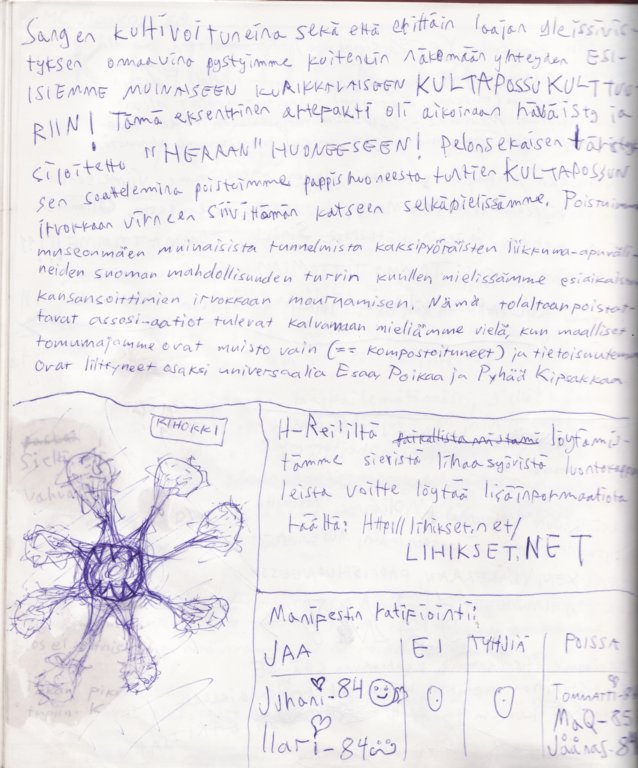 Sangen kultivoituneina sekä että erittäin laajan yleissivis-
tyksen omaavina pystyimme kuitenkin näkemään yhteyden ESI-
ISIEMME MUINAISEEN KURIKKALAISEEN KULTAPOSSUKULTTUU
RIIN! Tämä eksentrinen artefakti oli aikoinaan häväisty ja
sijoitettu "HERRAN" HUONEESEEN! Pelonsekaisen
sen saattelemina poistuimme pappishuoneesta tuntien KULTAPOSSUN
irvokkaan virneen siivittämän katseen selkäpielissämme. Poistuimme
museonmäen muinaisista tunnelmista kaksipyöräisten liikkuma-apuväli-
neiden suoman mahdollisuuden turvin kuullen mielissämme esiaikaisten
kansansoittimien irvokkaan mournamisen. Nämä tolaltaanpoistat-
tavat assosi-aatiot tulevat kalvamaan mieliämme vielä, kun maalliset
tomumajamme ovat muisto vain (== kompostoituneet) ja tietoisuutemme
ovat liittyneet osaksi universaalia Esaa, Poikaa ja Pyhää Kipsakkaa
KIHOKKI
H-Reitiltä paikallistamistamme löytämis-
tämme sieristä lihaasyövistä luontokappa
leista voitte löytää lisäinformaatiota
täältä: Http://lihikset.net/
LIHIKSET.NET
Manifestin ratifiointi:
JAA EI TYHJIÄ POISSA
Juhani-84 0 0
MaQ-85
Ilari-84